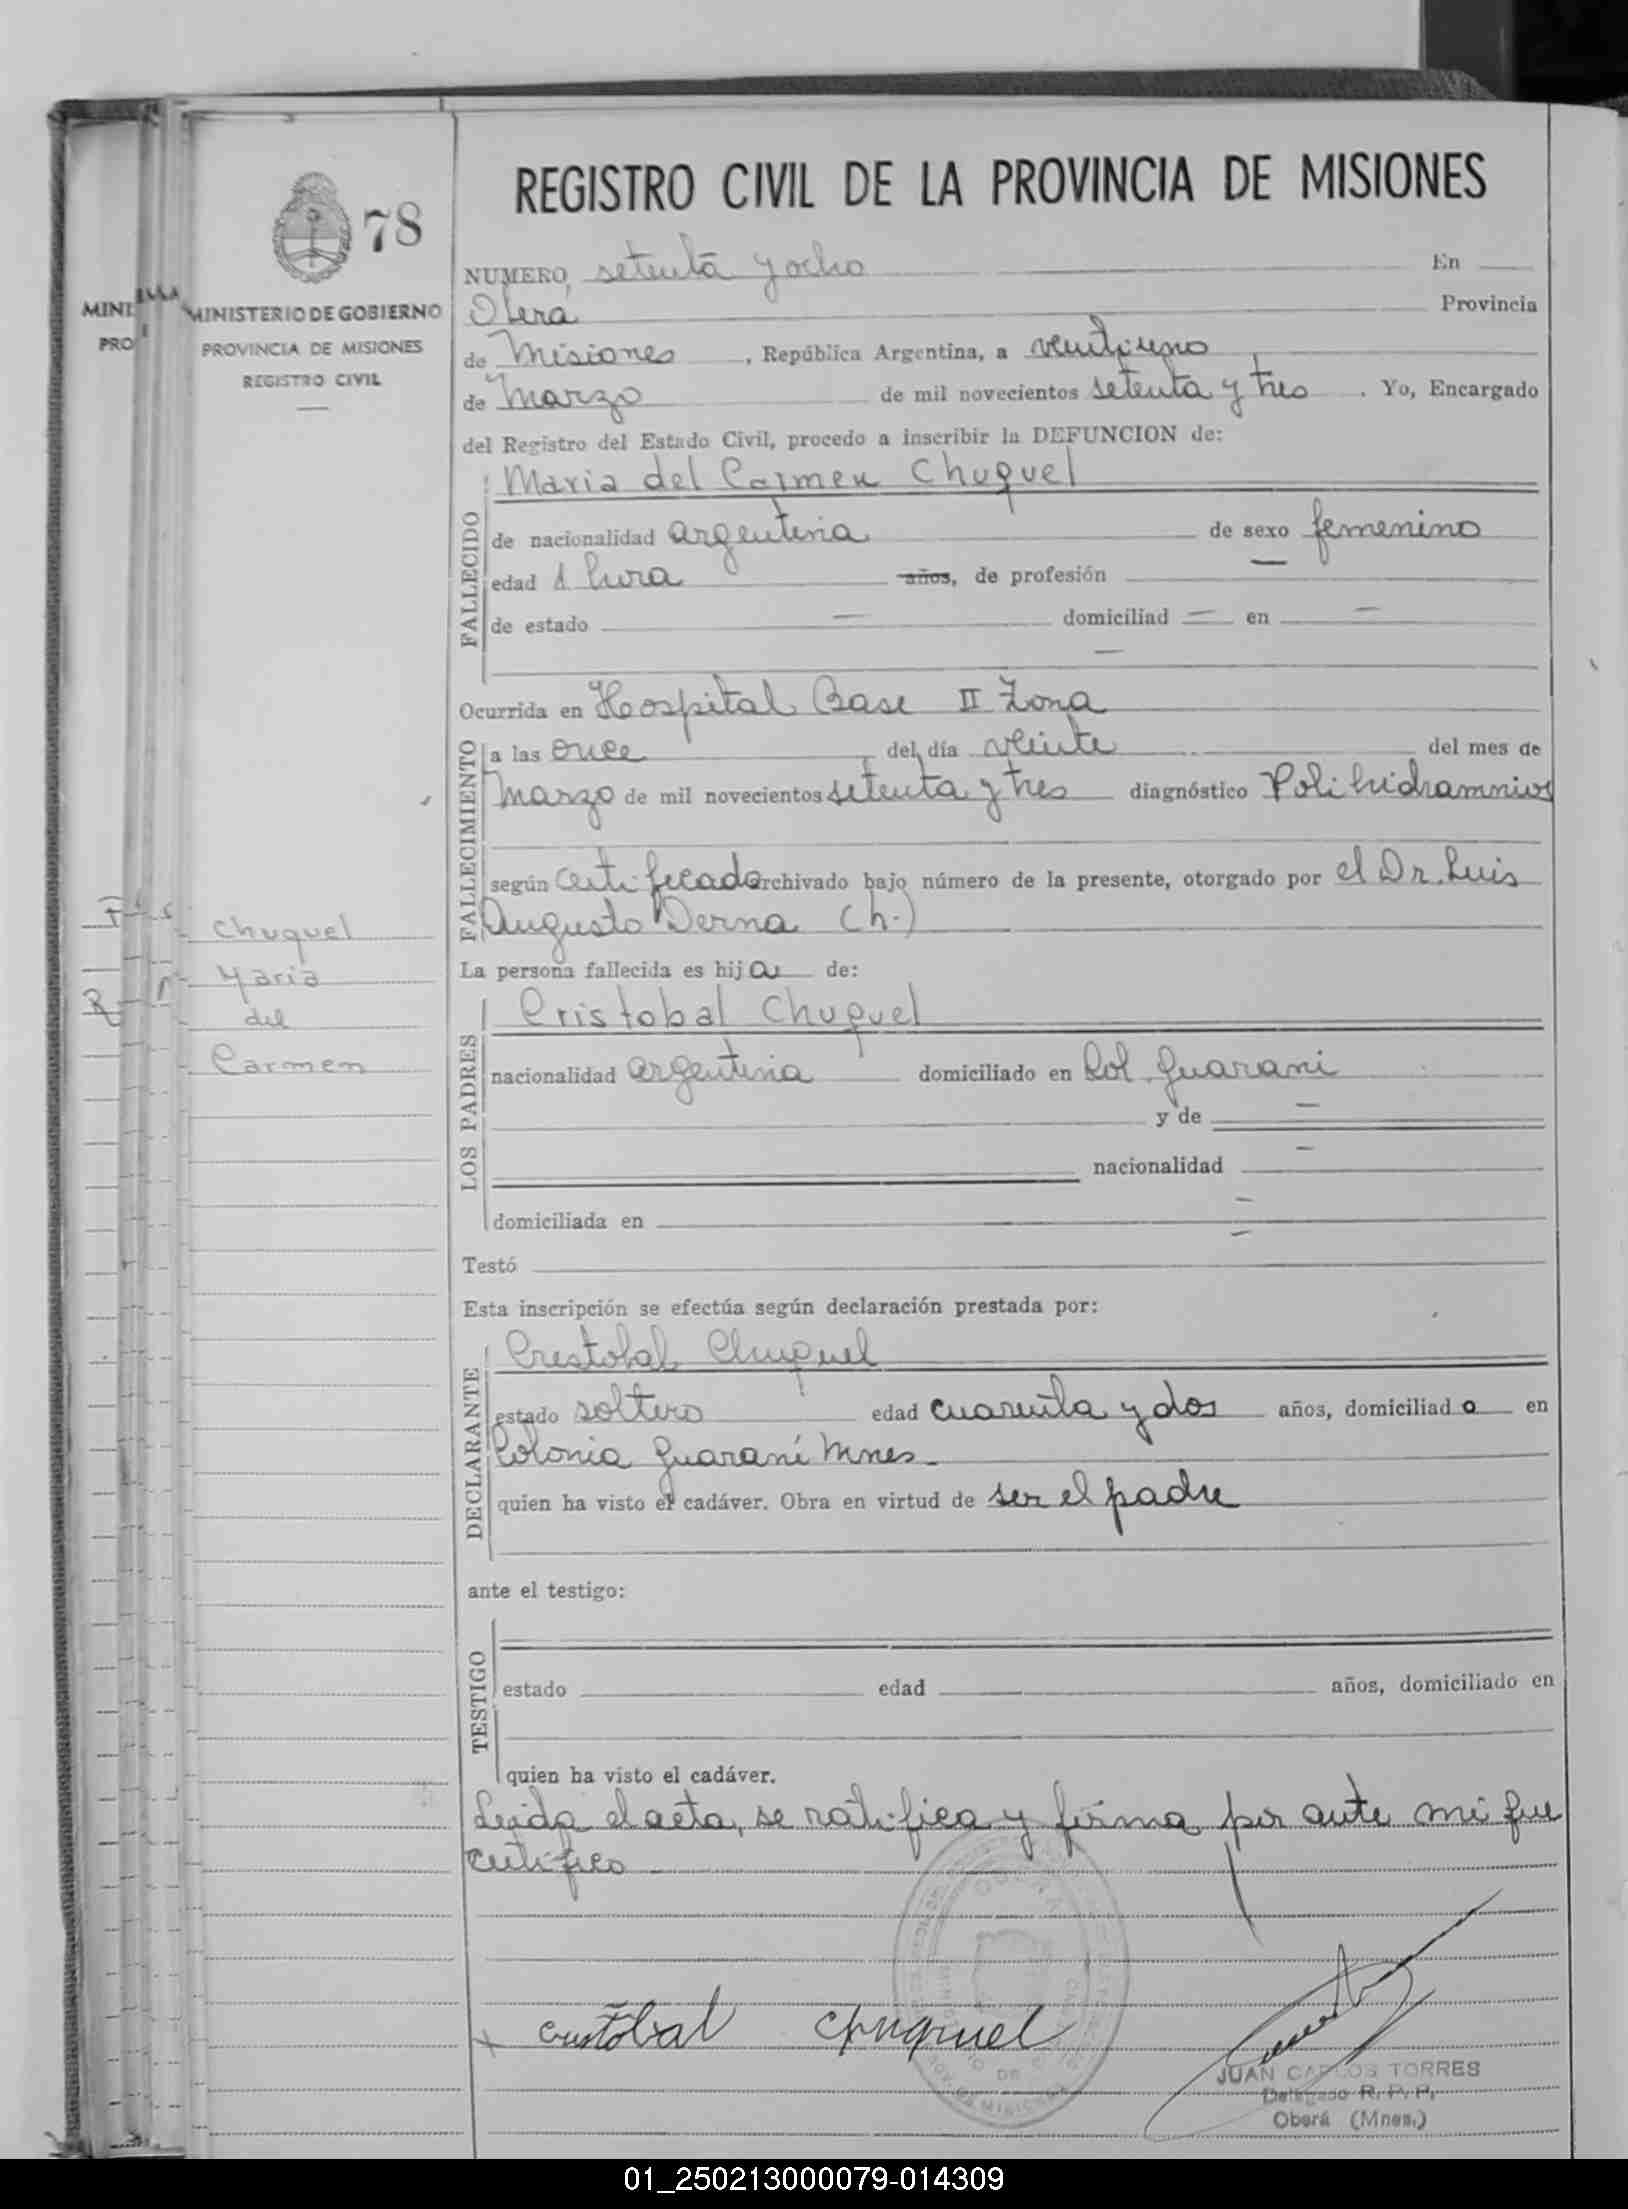 REGISTRO CIVIL DE LA PROVINCIA DE MISIONES
78
NUMERO, setenta y ocho En
Oberá Provincia
de Misiones, República Argentina, a veintiuno
de Marzo de mil novecientos setenta y tres. Yo, Encargado
del Registro del Estado Civil, procedo a inscribir la DEFUNCION de:
MINI
PRO
MINISTERIO DE GOBIERNO
PROVINCIA DE MISIONES
REGISTRO CIVIL
FALLECIDO
Maria del Carmen Chuquel
de nacionalidad argentina de sexo femenino
edad 1 hora años, de profesión —
de estado — domiciliad — en —
—
Ocurrida en Hospital Base II Zona
FALLECIMIENTO
a las once del día veinte del mes de
Marzo de mil novecientos setenta y tres diagnóstico Polihidramnios
según certificado archivado bajo número de la presente, otorgado por el Dr. Luis
Augusto Derna (h.)
Chuquel
Maria
del
Carmen
La persona fallecida es hija de:
LOS PADRES
Cristobal Chuquel
nacionalidad argentina domiciliado en Col. Guarani
y de —
nacionalidad —
domiciliada en —
Testó —
Esta inscripción se efectúa según declaración prestada por:
DECLARANTE
Cristobal Chuquel
estado soltero edad cuarenta y dos años, domiciliado en
Colonia Guaraní Mnes.
quien ha visto el cadáver. Obra en virtud de ser el padre
ante el testigo:
TESTIGO
estado edad años, domiciliado en
quien ha visto el cadáver.
Leida el acta, se ratifica y firma por ante mi que
certifico
cristobal chuquel
JUAN CARLOS TORRES
Delegado R. P. P.
Oberá (Mnes.)
01_250213000079-014309